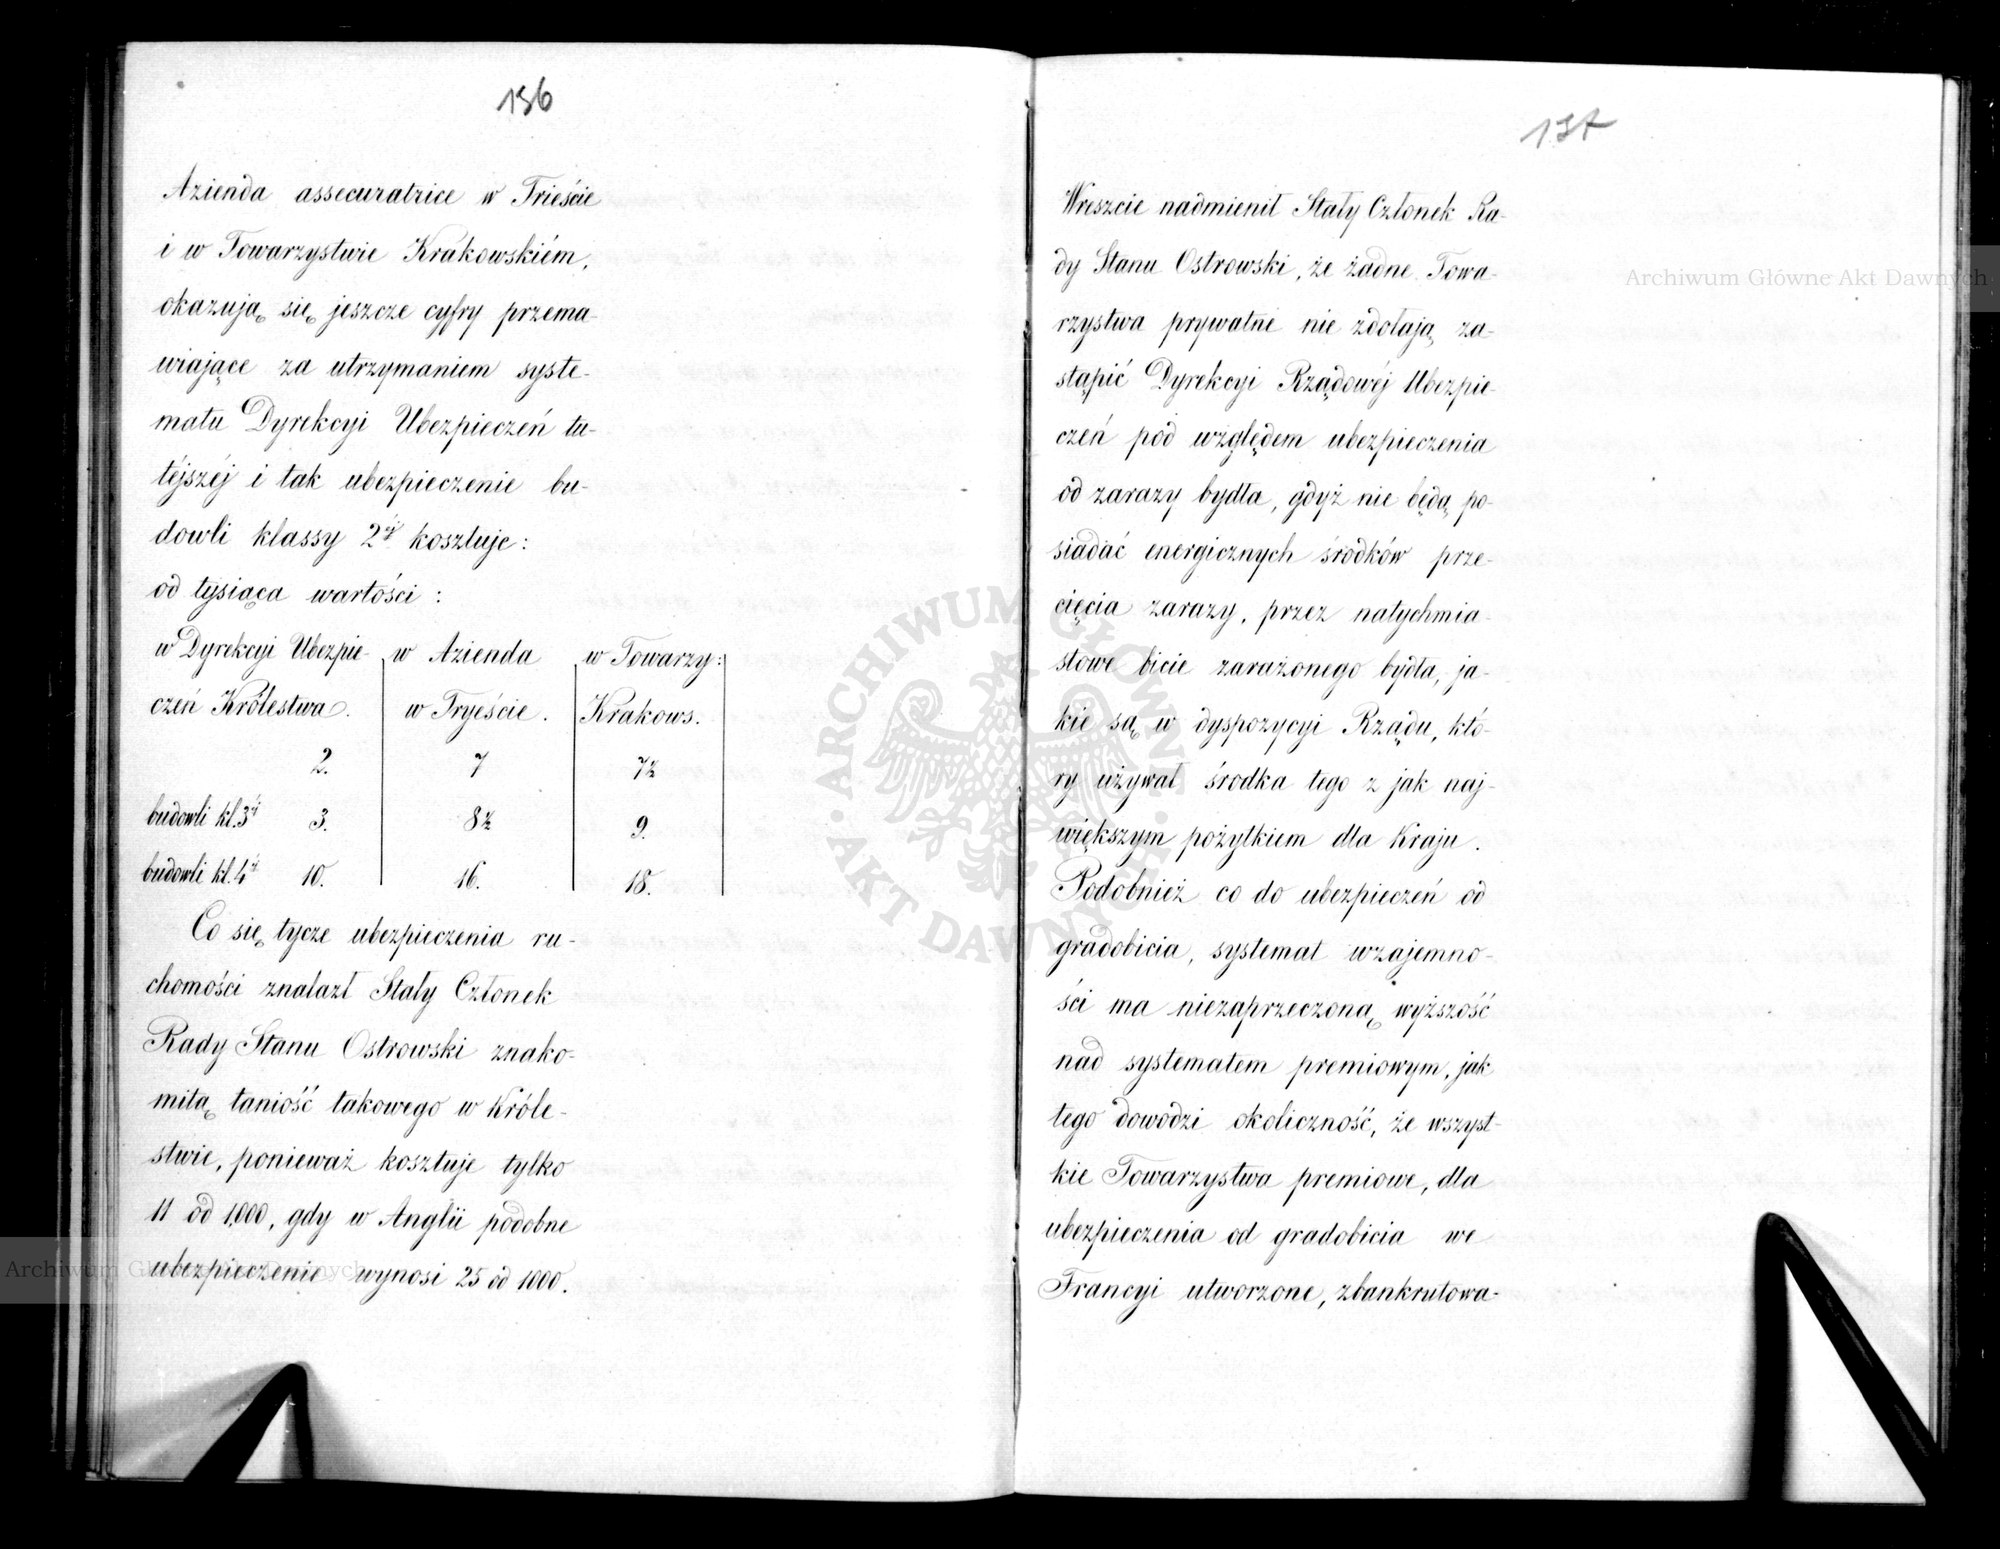 136
Azienda assecuratrice w Trieście
i w Towarzystwie Krakowskiém,
okazują się jeszcze cyfry przema-
wiające za utrzymaniem syste-
matu Dyrekcyi Ubezpieczeń tu-
téjszéj i tak ubezpieczenie bu-
dowli klassy 2éj kosztuje:
od tysiąca wartości:
w Dyrekcyi Ubezpie- w Azienda w Towarzy:
czeń Królestwa. w Tryeście. Krakows.
2. 7 7½
budowli kl. 3éj 3. 8½ 9.
budowli kl. 4éj 10. 16. 18.
Co się tycze ubezpieczenia ru-
chomości znalazł Stały Członek
Rady Stanu Ostrowski znako-
mitą taniość takowego w Króle-
stwie, ponieważ kosztuje tylko
11 od 1,000, gdy w Anglii podobne
ubezpieczenie wynosi 25 od 1000.
137
Wreszcie nadmienił Stały Członek Ra-
dy Stanu Ostrowski, że żadne Towa-
rzystwa prywatne nie zdołają za-
stąpić Dyrekcyi Rządowéj Ubezpie-
czeń pod względem ubezpieczenia
od zarazy bydła, gdyż nie będą po-
siadać energicznych środków prze-
cięcia zarazy, przez natychmia-
stowe bicie zarażonego bydła, ja-
kie są w dyspozycyi Rządu, któ-
ry używał środka tego z jak naj-
większym pożytkiem dla Kraju.
Podobnież co do ubezpieczeń od
gradobicia, systemat wzajemno-
ści ma niezaprzeczoną wyższość
nad systematem premiowym, jak
tego dowodzi okoliczność, że wszyst-
kie Towarzystwa premiowe, dla
ubezpieczenia od gradobicia we
Francyi utworzone, zbankrutowa-
Archiwum Główne Akt Dawnych
Archiwum Główne Akt Dawnych
ARCHIWUM GŁÓWNE
AKT DAWNYCH